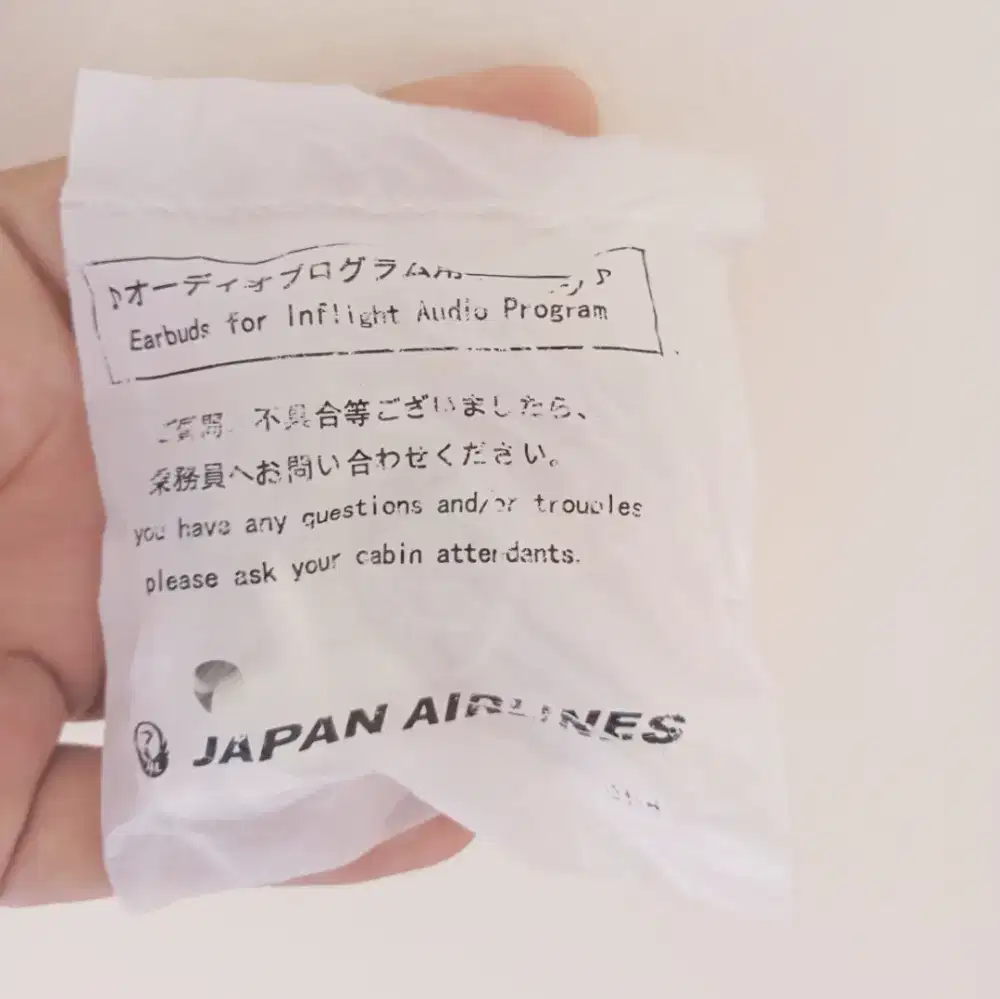 ♪オーディオプログラム用 ♪
Earbuds for Inflight Audio Program
ご質問、不具合等ございましたら、
乗務員へお問い合わせください。
you have any questions and/or troubles
please ask your cabin attendants.
JAPAN AIRLINES